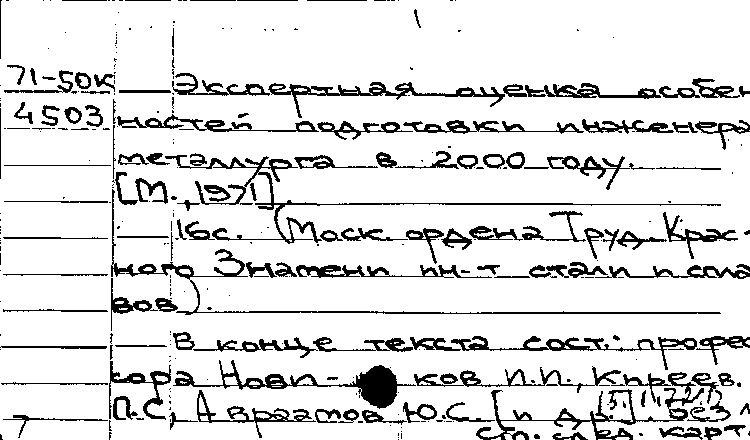 71-50К Экспертная оценка особен
4503 ностей подготовки инженера
металлурга в 2000 году.
[М., 1971].
16с. (Моск. ордена Труд. Крас-
ного Знамени ин-т стали и спла
вов).
В конце текста сост.: профес
сора Нови- ков И.И., Киреев.
П.С., Авраамов Ю.С. [и др.]. Без
7 см. след. карт.